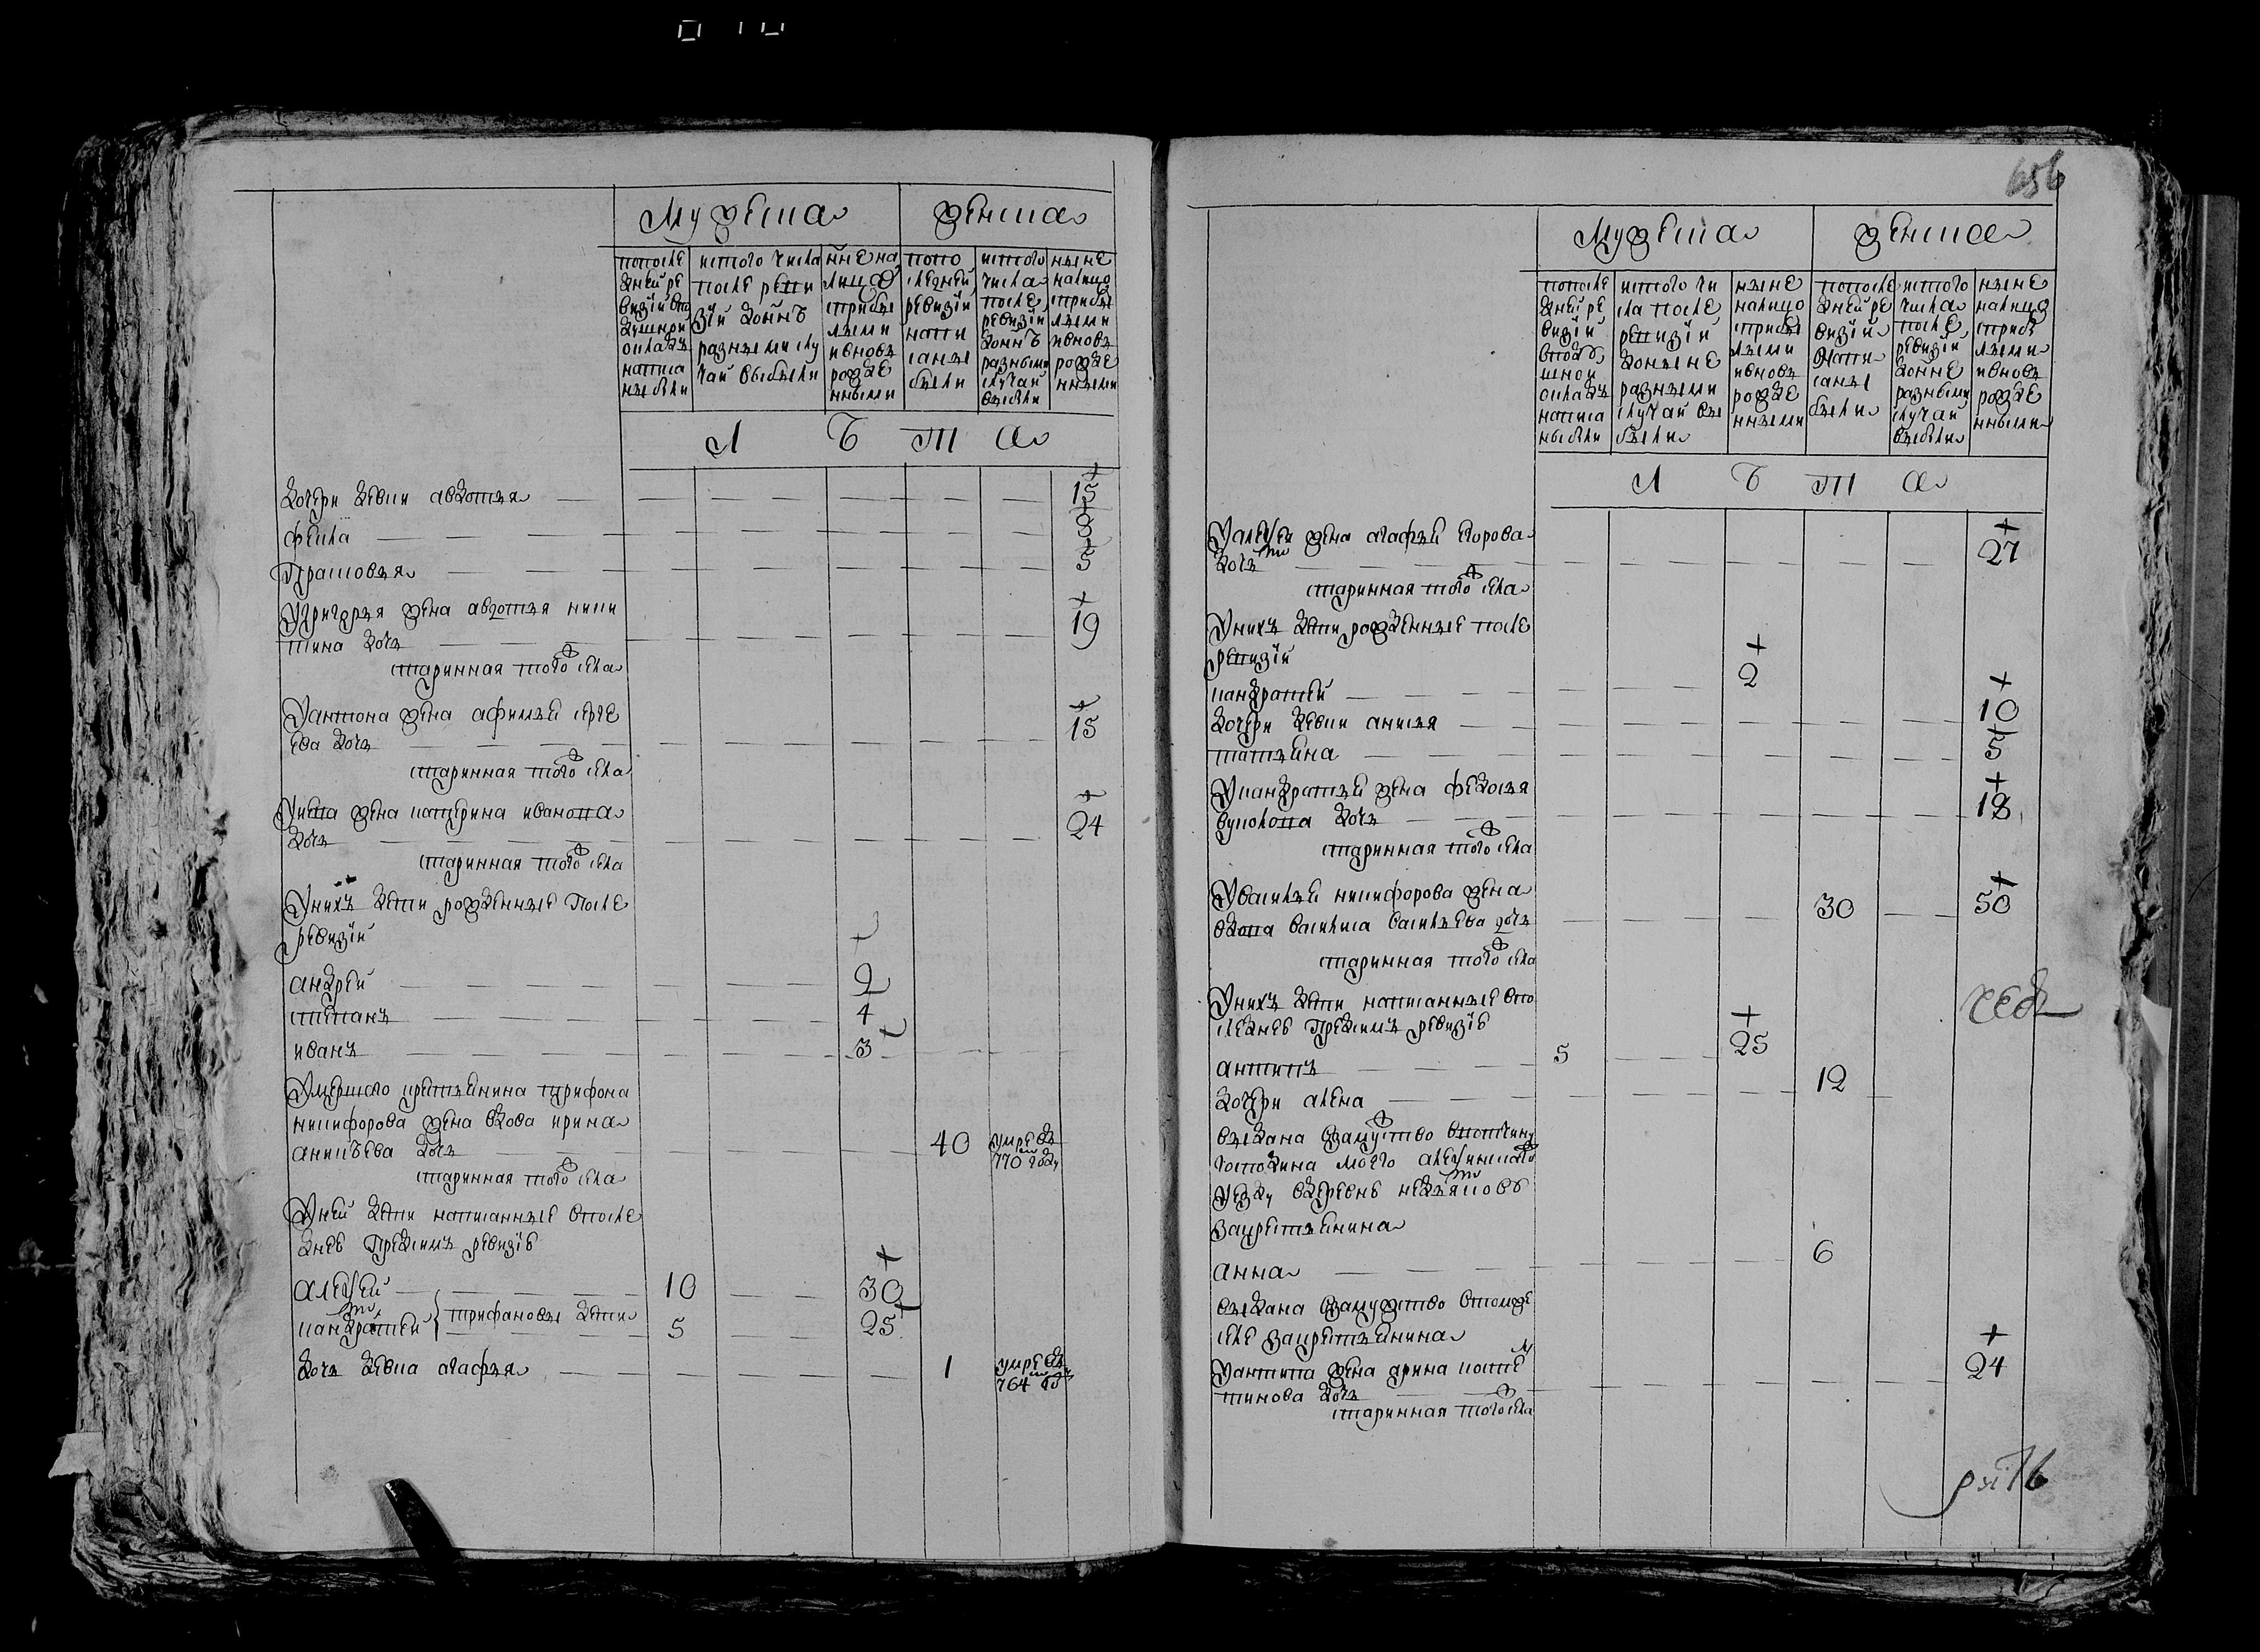 Мужеска
женска
попосле
дней ре
визiи въ по
душной
окладъ
написа
ны были
истого числа
после реви
зiи до ннѣ
разными слу
чаи выбыли
ннѣ на
лицѣ
сприбы
лыми
ивновь
рожде
нными
попо
следней
ревизiи
напи
саны
были
истого
числа
после
ревизiи
до ннѣ
разными
случаи
выбыли
ныне
налицо
сприбы
лыми
ивновь
рожде
нными
Л Ѣ Т А
дочери девки авдотья 15
фекла 8
Прасковья 5
Угригорья жена авдотья ники
тина дочь 19
старинная того села
Уантона жена афимьй серге
ева дочь 15
старинная того села
жена катерина иванова
дочь 24
старинная того села
Унихъ дети рожденные После
ревизiи
андрей 2
степанъ 4
иванъ 3
Умершего крестьянина трифона
никифорова жена вдова ирина
аникѣева дочь 40 умре въ
770 году
старинная того села
Уней дети написанные впосле
днеѣ Предкимъ ревизiѣ
алеѯей 10 30
кандратей трифановы дети 5 25
дочь девка агафья 1 умре въ
764 г
656
Мужеска
женска
попосле
дней ре
визiи
вподу
шной
окладъ
написа
ны были
истого чи
сла после
ревизiи
до ныне
разными
случаи вы
были
ныне
налицо
сприбы
лыми
ивновь
рожде
нными
попосле
дней ре
визiи
напи
саны
были
истого
числа
после
ревизiи
до нне
разными
случаи
выбыли
ныне
налицо
сприбы
лыми
ивновь
рожде
нными
Л Ѣ Т А
Уалеѯея жена агафьй егорова
дочь 27
старинная того села
Унихъ дети рожденные после
ревизiи
кандратей 2
дочери девки анисья 10
татьяна 5
Укандратьй жена федосья
вуколова дочь 18
старинная того села
Увасильй никифорова жена
вдова василиса васильева дочь 30 50
старинная того села
Унихъ дети написанные впо
следнеѣ Предкимъ ревизiѣ
антипъ 5 25
дочери алена 12
выдана взамужство ввотчину
господина моего алеѯинскаго
уезду вдеревнѣ
закрестьянина
анна 6
выдана взамужство втомже
селе закрестьянина
Уантипа жена арина
тинова дочь 24
старинная того села